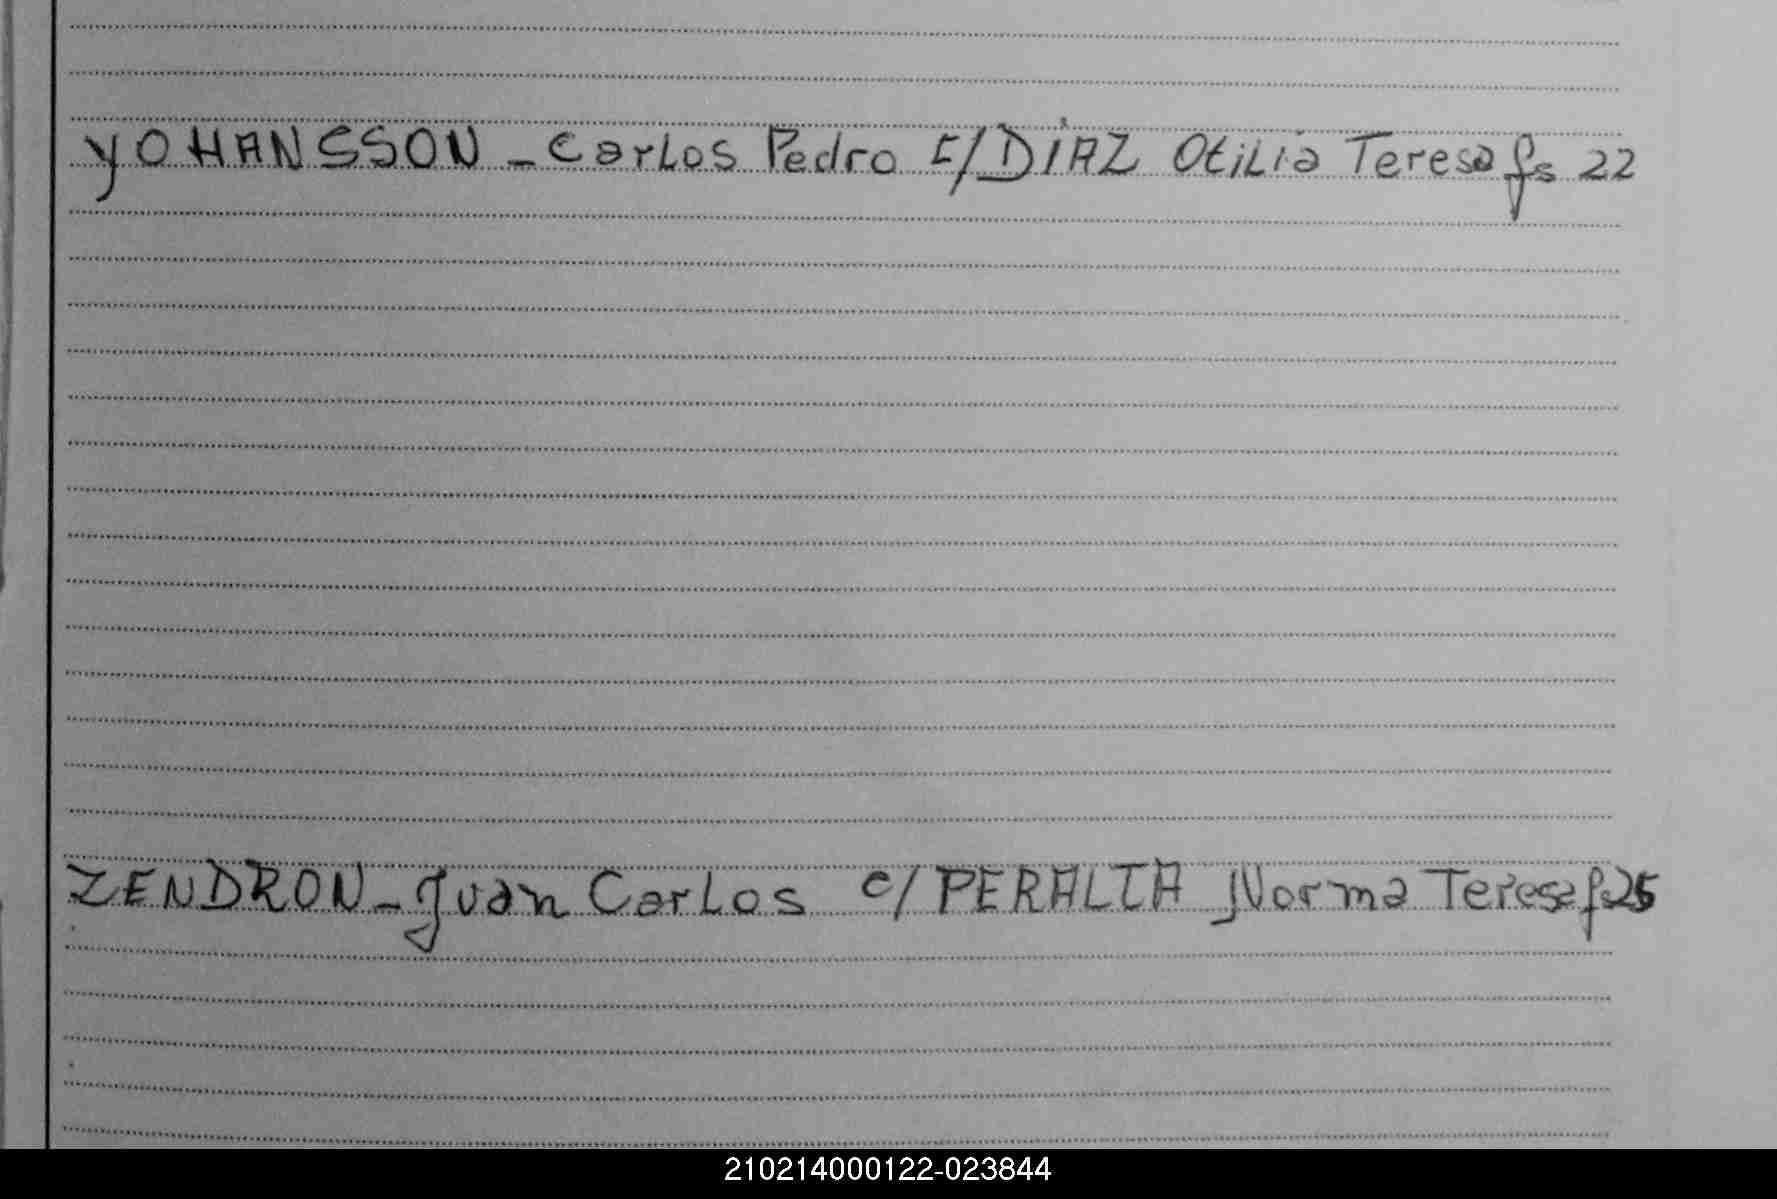 YOHANSSON - Carlos Pedro c/ DíAZ Otilia Teresa fs 22
ZENDRON - Juan Carlos c/ PERALTA Norma Teresa fs 25
210214000122-023844